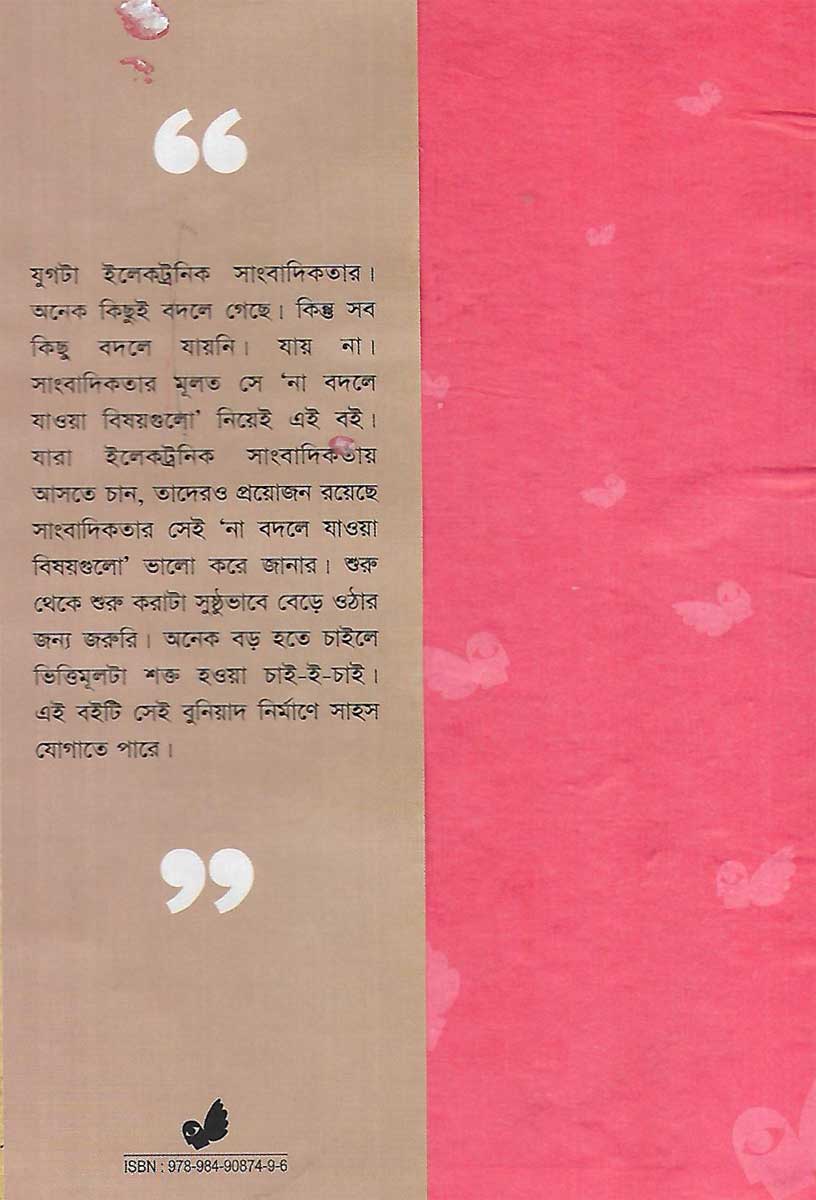 যুগটা ইলেকট্রনিক সাংবাদিকতার।
অনেক কিছুই বদলে গেছে। কিন্তু সব
কিছু বদলে যায়নি। যায় না।
সাংবাদিকতার মূলত সে ‘না বদলে
যাওয়া বিষয়গুলো’ নিয়েই এই বই।
যারা ইলেকট্রনিক সাংবাদিকতায়
আসতে চান, তাদেরও প্রয়োজন রয়েছে
সাংবাদিকতার সেই ‘না বদলে যাওয়া
বিষয়গুলো’ ভালো করে জানার। শুরু
থেকে শুরু করাটা সুষ্ঠুভাবে বেড়ে ওঠার
জন্য জরুরি। অনেক বড় হতে চাইলে
ভিত্তিমূলটা শক্ত হওয়া চাই-ই-চাই।
এই বইটি সেই বুনিয়াদ নির্মাণে সাহস
যোগাতে পারে।
ISBN : 978-984-90874-9-6